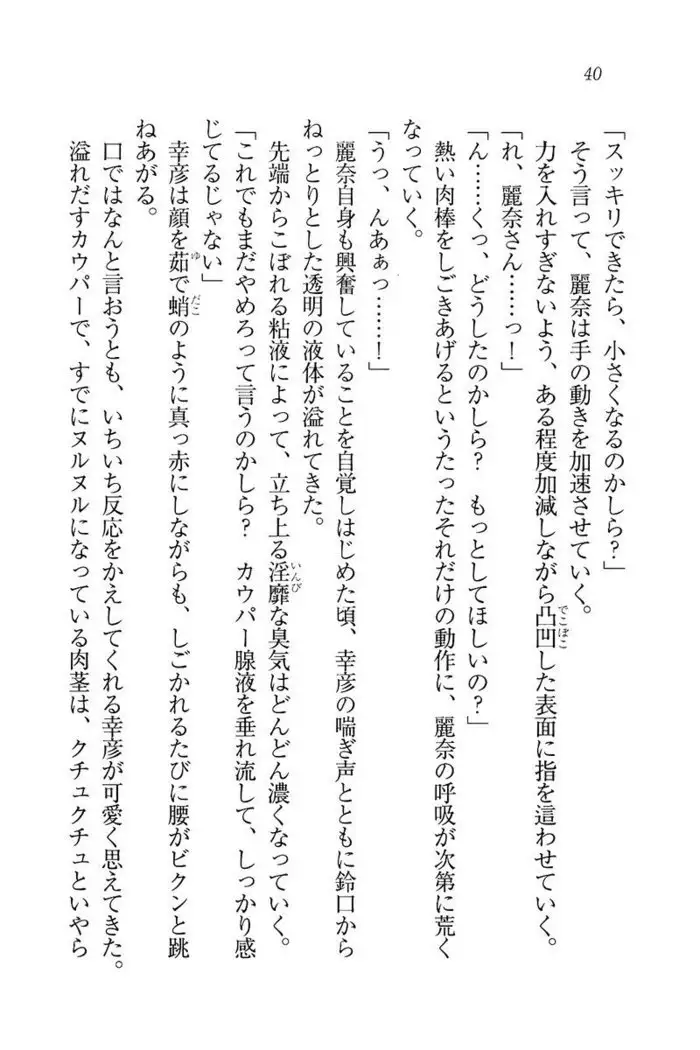 40
「スッキリできたら、小さくなるのかしら?」
そう言って、麗奈は手の動きを加速させていく。
力を入れすぎないよう、ある程度加減しながら凸凹した表面に指を這わせていく。
「れ、麗奈さん……っ!」
「ん……くっ、どうしたのかしら? もっとしてほしいの?」
熱い肉棒をしごきあげるというたったそれだけの動作に、麗奈の呼吸が次第に荒く
なっていく。
「うっ、んあぁっ……!」
麗奈自身も興奮していることを自覚しはじめた頃、幸彦の喘ぎ声とともに鈴口から
ねっとりとした透明の液体が溢れてきた。
先端からこぼれる粘液によって、立ち上る淫靡な臭気はどんどん濃くなっていく。
「これでもまだやめろって言うのかしら? カウパー腺液を垂れ流して、しっかり感
じてるじゃない」
幸彦は顔を茹で蛸のように真っ赤にしながらも、しごかれるたびに腰がビクンと跳
ねあがる。
口ではなんと言おうとも、いちいち反応をかえしてくれる幸彦が可愛く思えてきた。
溢れだすカウパーで、すでにヌルヌルになっている肉茎は、クチュクチュといやら